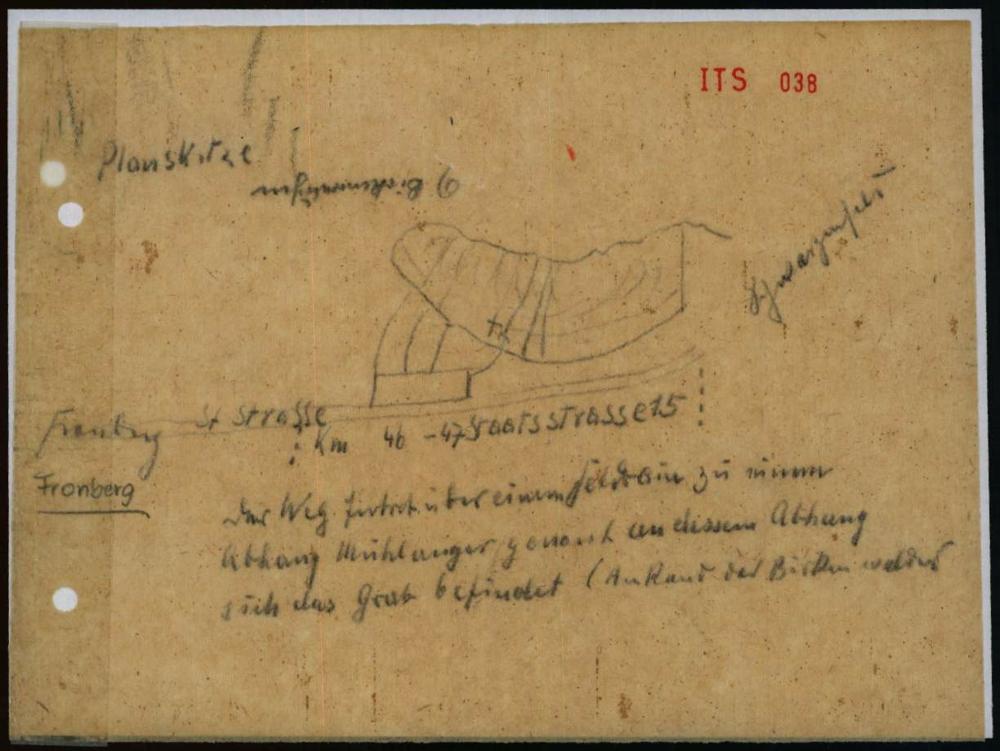 ITS 038
Planskitze
Schwarzenfels
Fronberg St Strasse
Km 46 - 47 Staatsstrasse 15
Fronberg
Der Weg fürt über einem Feldrain zu einem
Abhang Mühlanger genant an dissem Abhang
sich das Grab befindet (Am Rand des Birken waldes